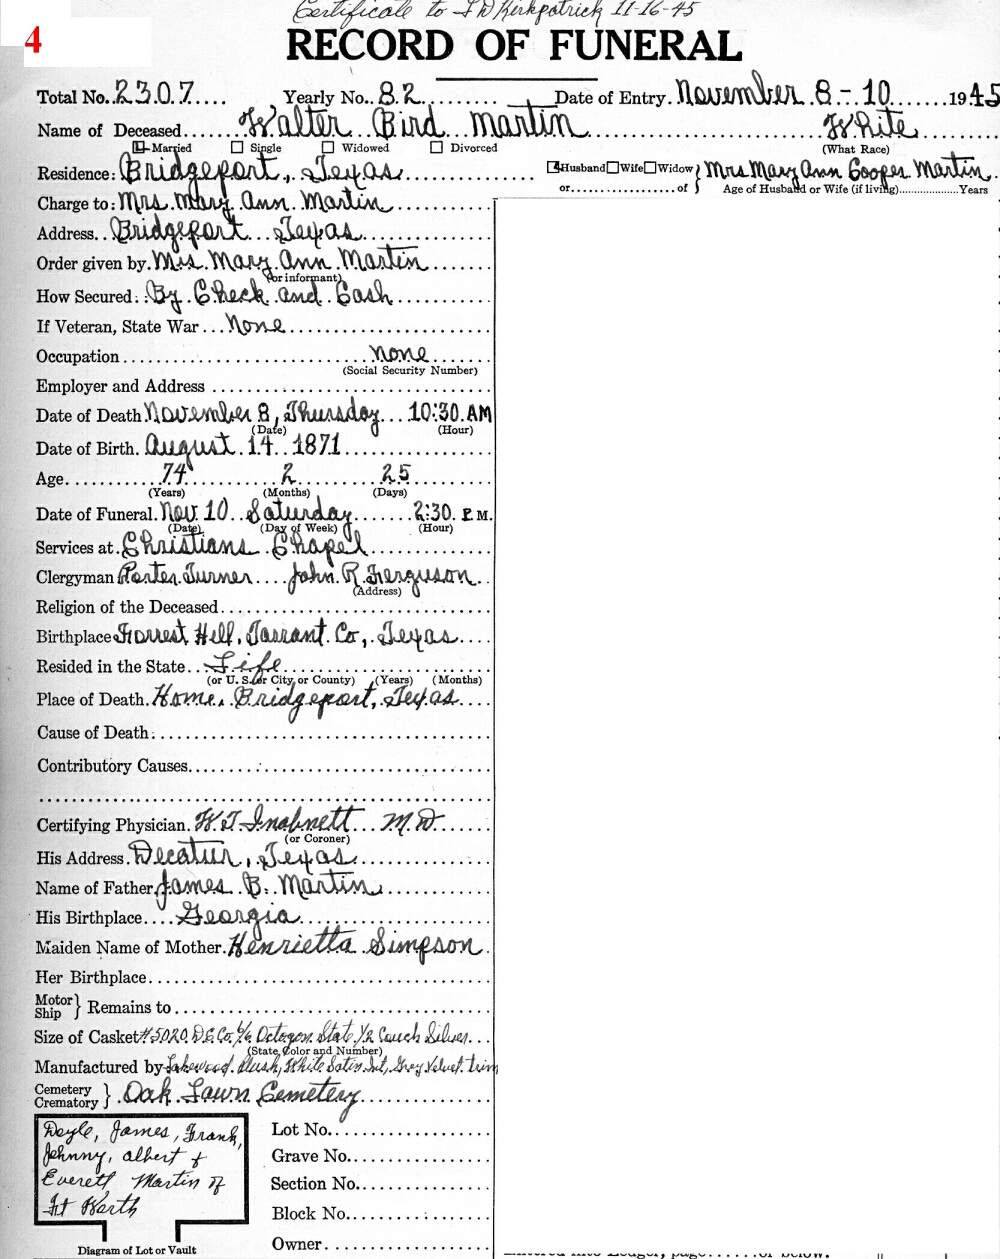 Certificate to J D Kirkpatrick 11-16-45
4
RECORD OF FUNERAL
Total No. 2307 Yearly No. 82 Date of Entry November 8-10 1945
Name of Deceased Walter Bird Martin White
Married Single Widowed Divorced (What Race)
Residence: Bridgeport, Texas Husband Wife Widow } Mrs Mary Ann Cooper Martin
or of Age of Husband or Wife (if living) Years
Charge to: Mrs. Mary Ann Martin
Address Bridgeport Texas
Order given by Mrs. Mary Ann Martin
(or informant)
How Secured: By Check and Cash
If Veteran, State War None
Occupation None
(Social Security Number)
Employer and Address
Date of Death November 8, Thursday 10:30 AM
(Date) (Hour)
Date of Birth August 14 1871
Age 74 2 25
(Years) (Months) (Days)
Date of Funeral Nov. 10 Saturday 2:30 P.M.
(Date) (Day of Week) (Hour)
Services at Christians Chapel
Clergyman Porter Turner John R. Ferguson
(Address)
Religion of the Deceased
Birthplace Forrest Hill, Tarrant Co, Texas
Resided in the State Life
(or U. S. or City or County) (Years) (Months)
Place of Death Home, Bridgeport, Texas
Cause of Death:
Contributory Causes
Certifying Physician W. T. Inabnett M D
(or Coroner)
His Address Decatur, Texas
Name of Father James B. Martin
His Birthplace Georgia
Maiden Name of Mother Henrietta Simpson
Her Birthplace
Motor Ship } Remains to
Size of Casket #5020 D.C.Co. 6/6 Octogon State 1/2 Couch Silver
(State, Color and Number)
Manufactured by Lakewood Plush, White Satin Int, Grey Velvet trim
Cemetery Crematory } Oak Lawn Cemetery
Doyle, James, Frank,
Johnny, Albert &
Everett Martin of
Ft Worth
Lot No.
Grave No.
Section No.
Block No.
Owner
Diagram of Lot or Vault
Entered into Ledger, page or below.